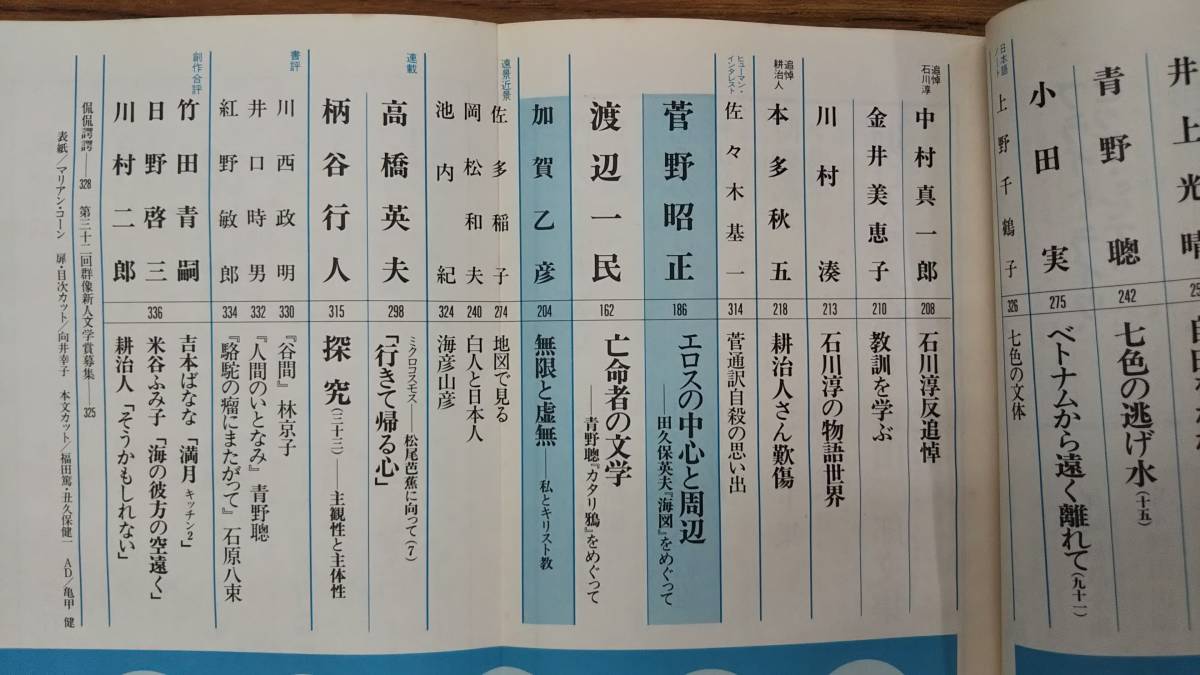 井上光晴
青野聰
242
七色の逃げ水(十五)
小田実
275
ベトナムから遠く離れて(九十一)
日本語
ノート
上野千鶴子
326
七色の文体
追悼
石川淳
中村真一郎
208
石川淳反追悼
金井美恵子
210
教訓を学ぶ
川村湊
213
石川淳の物語世界
追悼
耕治人
本多秋五
218
耕治人さん歎傷
ヒューマン・
インタレスト
佐々木基一
314
菅通訳自殺の思い出
菅野昭正
186
エロスの中心と周辺
——田久保英夫『海図』をめぐって
渡辺一民
162
亡命者の文学
——青野聰『カタリ鴉』をめぐって
加賀乙彦
204
無限と虚無——私とキリスト教
遠景近景
佐多稲子
274
地図で見る
岡松和夫
240
白人と日本人
池内紀
324
海彦山彦
連載
高橋英夫
298
ミクロコスモス——松尾芭蕉に向って(7)
「行きて帰る心」
柄谷行人
315
探究(三十三)——主観性と主体性
書評
川西政明
330
『谷間』林京子
井口時男
332
『人間のいとなみ』青野聰
紅野敏郎
334
『駱駝の瘤にまたがって』石原八束
創作合評
竹田青嗣
日野啓三
川村二郎
336
吉本ばなな「満月 キッチン2」
米谷ふみ子「海の彼方の空遠く」
耕治人「そうかもしれない」
侃侃諤諤——328 第三十二回群像新人文学賞募集——325
表紙/マリアン・コーン 扉・目次カット/向井幸子 本文カット/福田篤・丑久保健一 AD/亀甲健